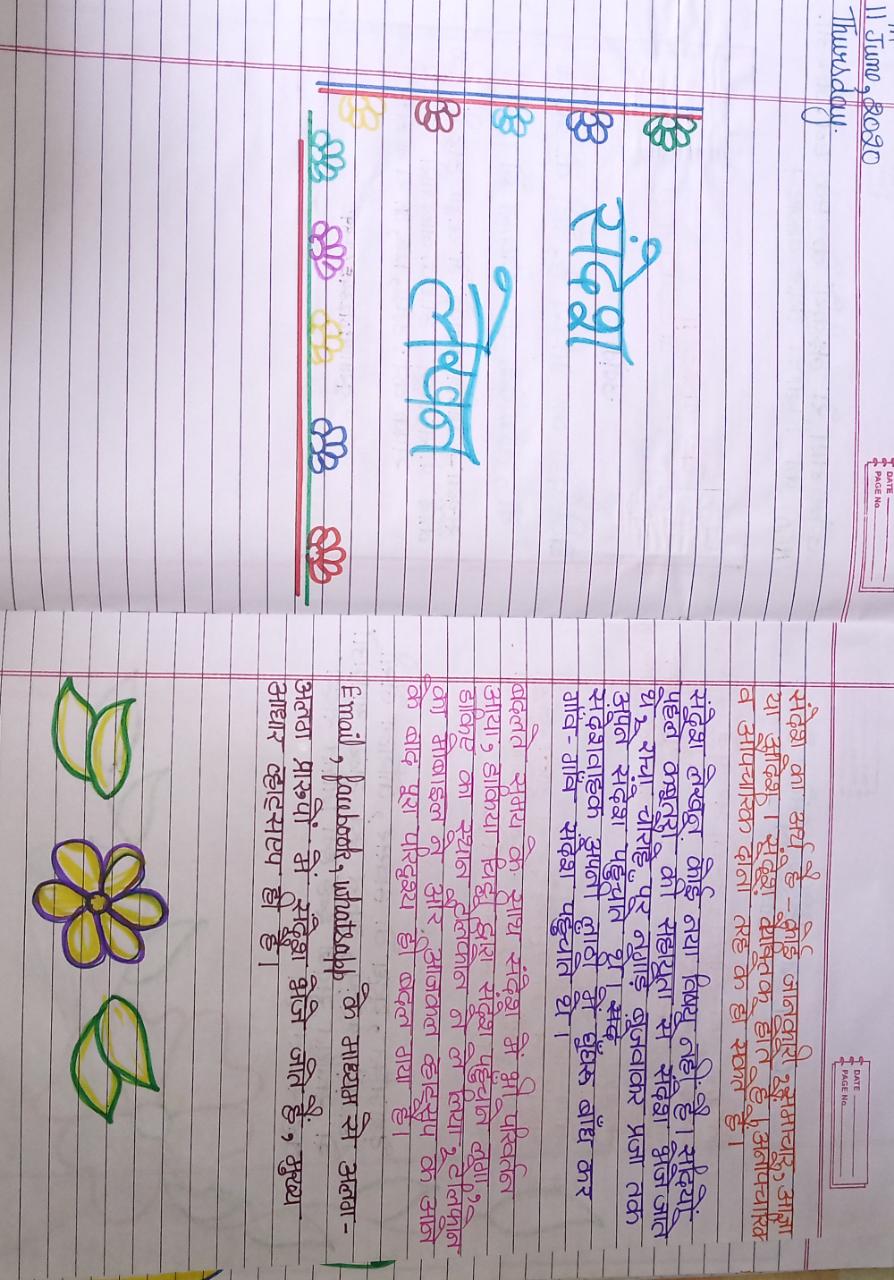 11 June, 2020
Thursday.
DATE
PAGE No.
संदेश
लेखन
DATE
PAGE No.
संदेश का अर्थ है - कोई जानकारी, समाचार, आज्ञा
या आदेश। संदेश मौखिक होते हैं, अनौपचारिक
व औपचारिक दोनों तरह के हो सकते हैं।
संदेश लेखन कोई नया विषय नहीं है। सदियों
पहले कबूतरों की सहायता से संदेश भेजे जाते
थे, राजा चौराहे पर नगाड़े बजवाकर प्रजा तक
अपने संदेश पहुँचाते थे।
संदेशवाहक अपनी लाठी में घुँघरू बाँध कर
गाँव - गाँव संदेश पहुँचाते थे।
बदलते समय के साथ संदेश में भी परिवर्तन
आया, डाकिया चिट्ठी द्वारा संदेश पहुँचाने लगा,
डाकिए का स्थान टेलीफोन ने ले लिया, टेलीफोन
का मोबाइल ने और आजकल व्हाट्सएप के आने
के बाद पूरा परिदृश्य ही बदल गया है।
Email, facebook, whatsapp के माध्यम से अलग -
अलग प्रारूपों में संदेश भेजे जाते हैं, मुख्य
आधार व्हाट्सएप ही है।